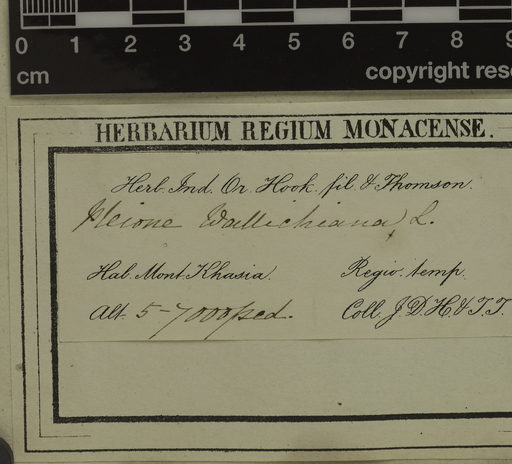 0 1 2 3 4 5 6 7 8 9
cm
copyright rese
HERBARIUM REGIUM MONACENSE.
Herb. Ind. Or. Hook. fil. & Thomson.
Pleione Wallichiana L.
Hab. Mont Khasia. Regio. temp.
Alt. 5-7000 ped. Coll. J. D. H. & T. T.